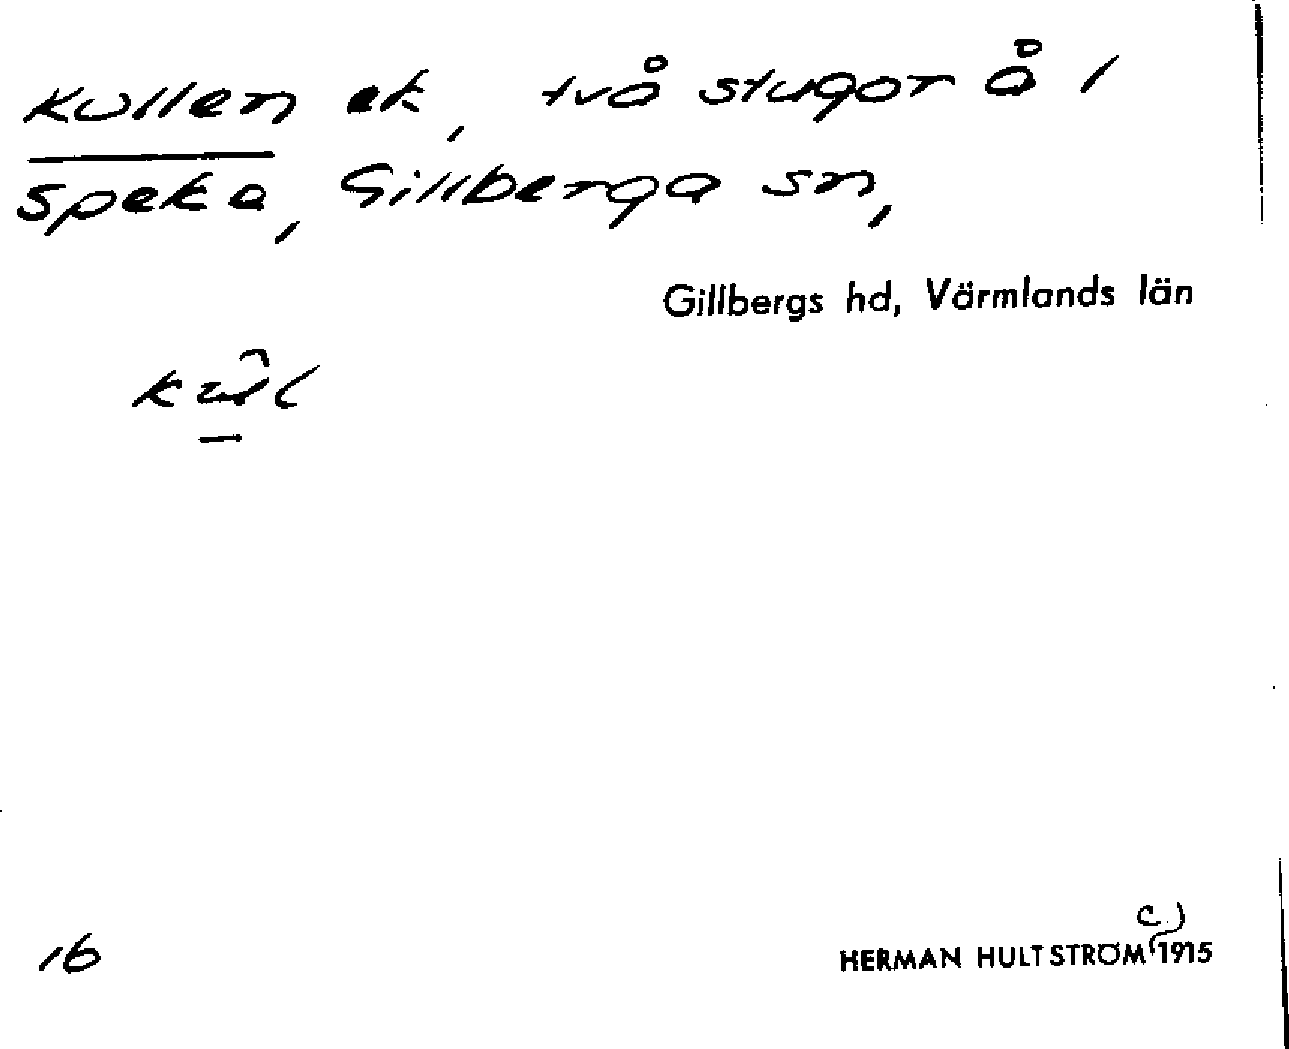 Kullen ek, två stugor å 1
Speka, Gillberga sn,
Gillbergs hd, Värmlands län
16
c)
HERMAN HULTSTRÖM 1915